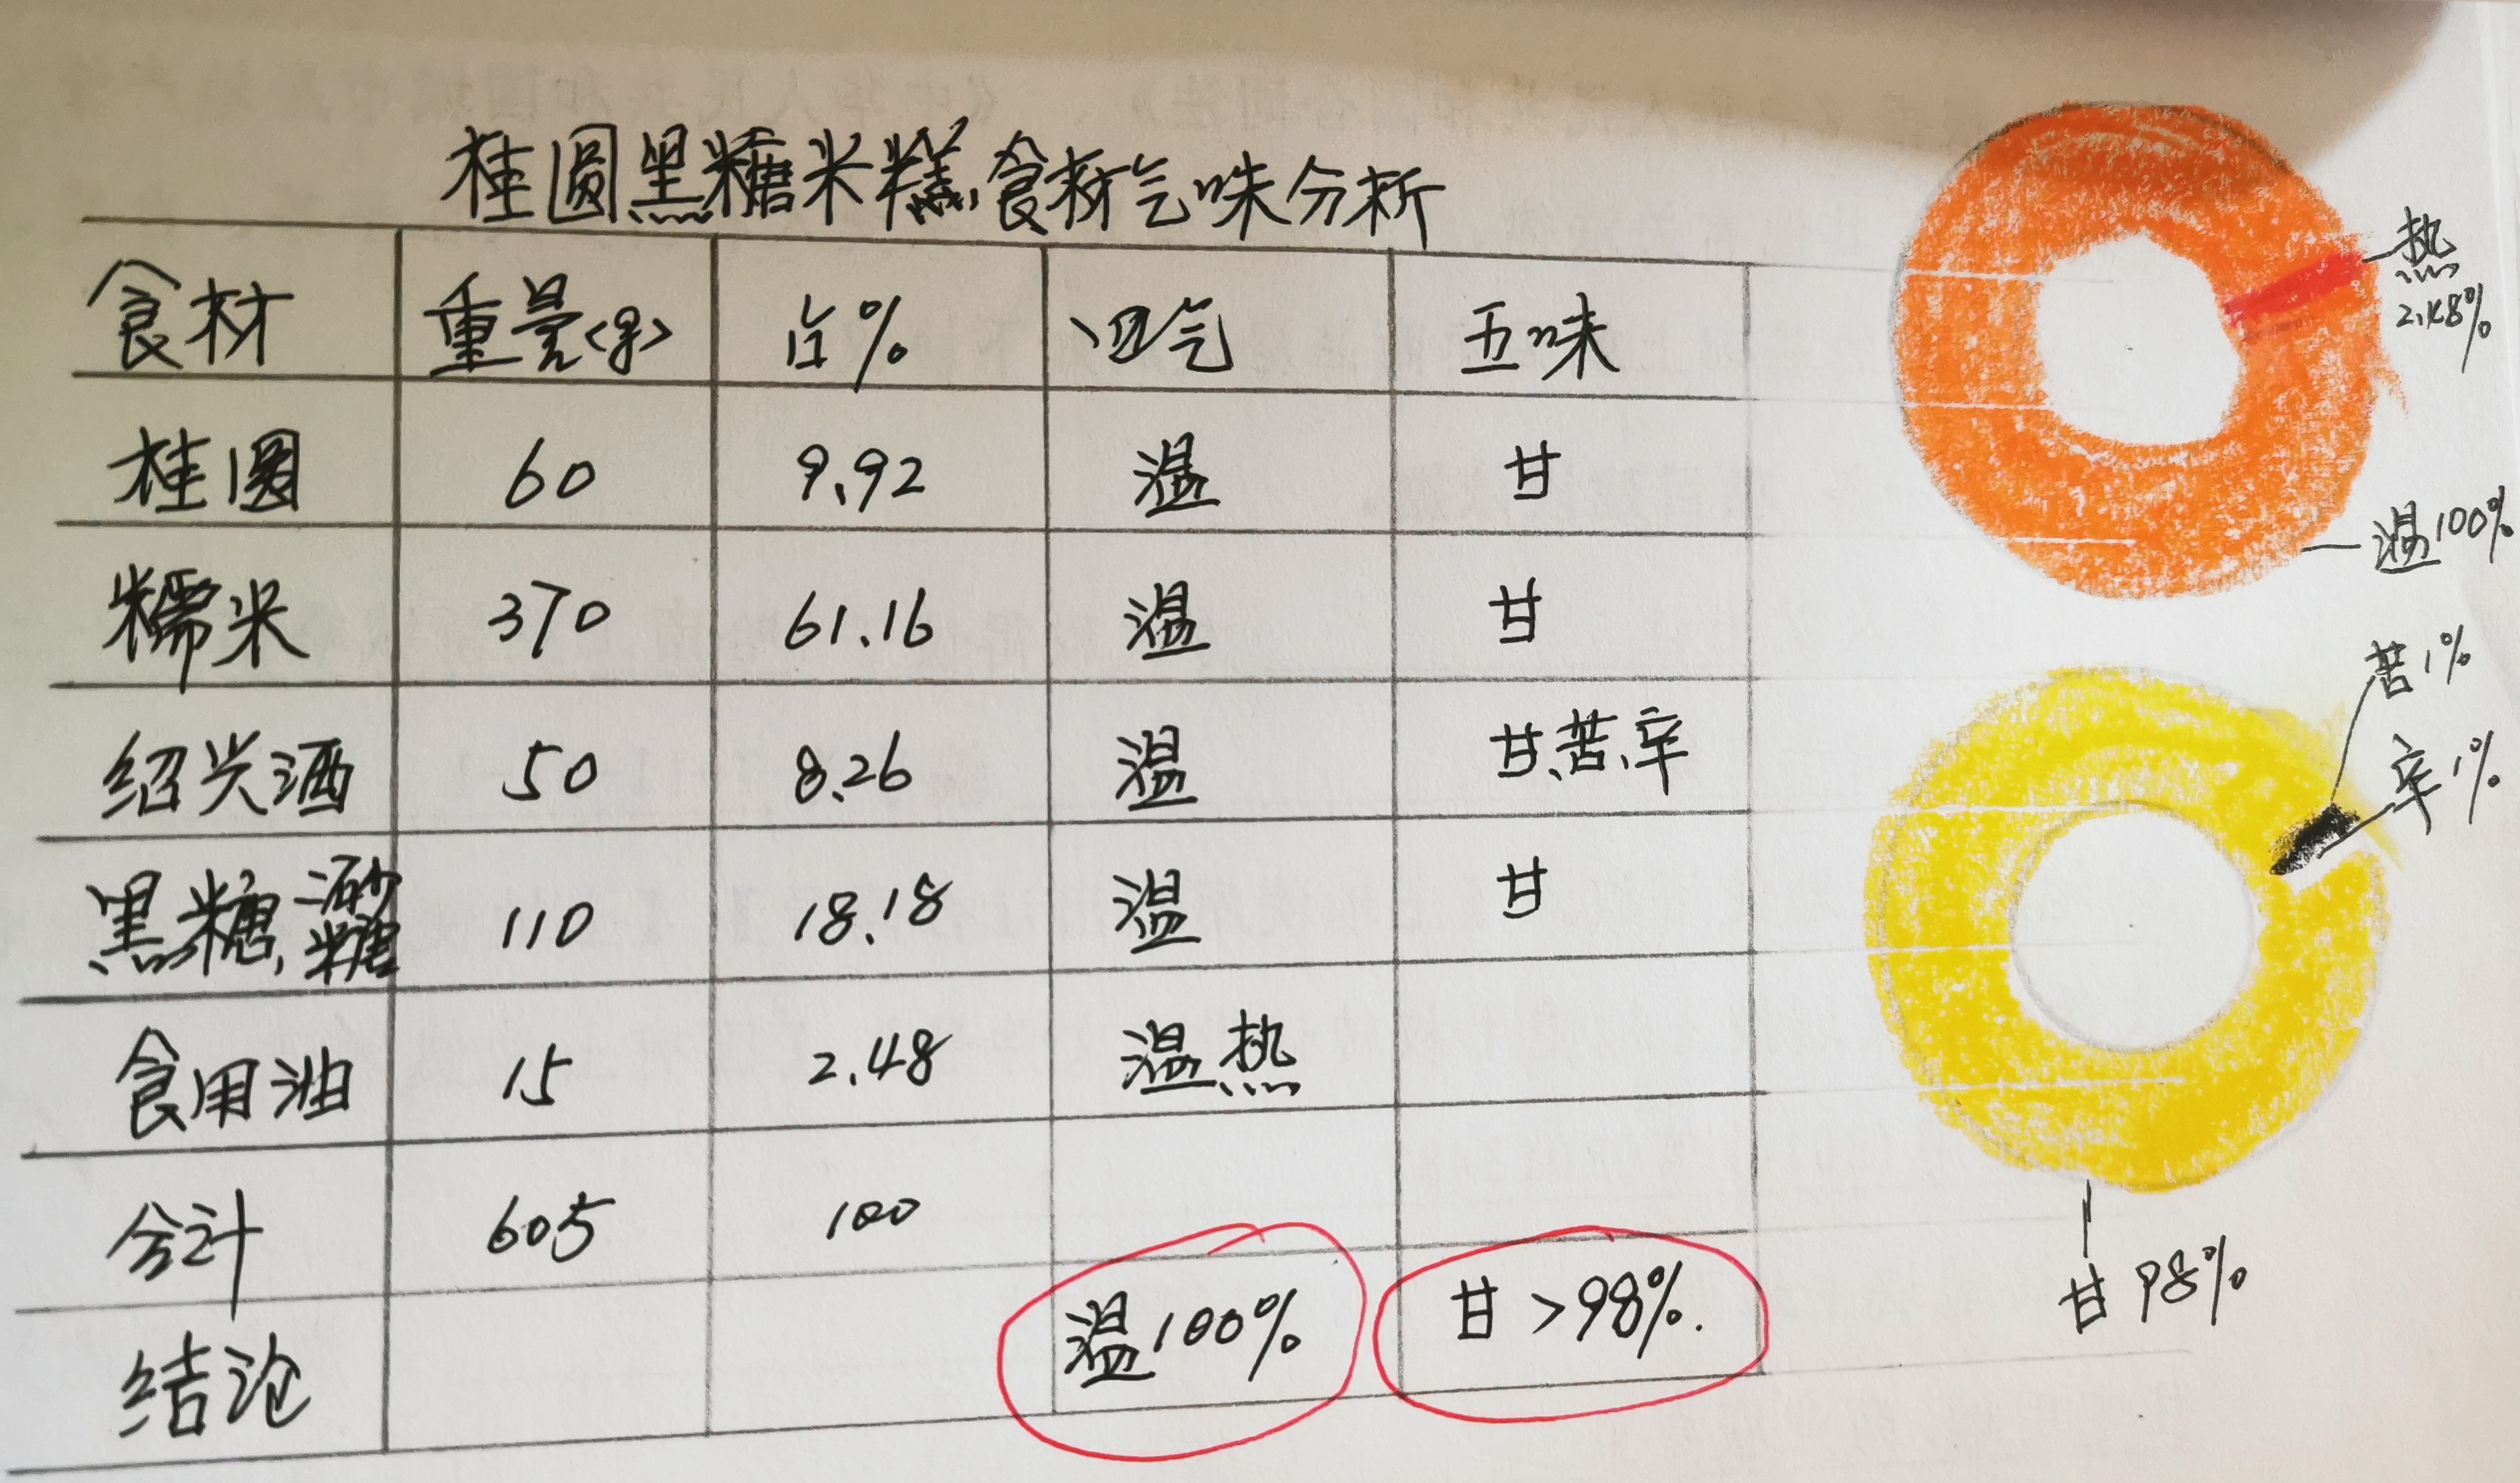 桂圆黑糖米糕食材气味分析
食材 重量<g> 占% 四气 五味
桂圆 60 9.92 温 甘
糯米 370 61.16 温 甘
绍兴酒 50 8.26 温 甘、苦、辛
黑糖、砂糖 110 18.18 温 甘
食用油 15 2.48 温热
合计 605 100
结论 温100% 甘>98%.
热
2.48%
温100%
苦1%
辛1%
甘98%